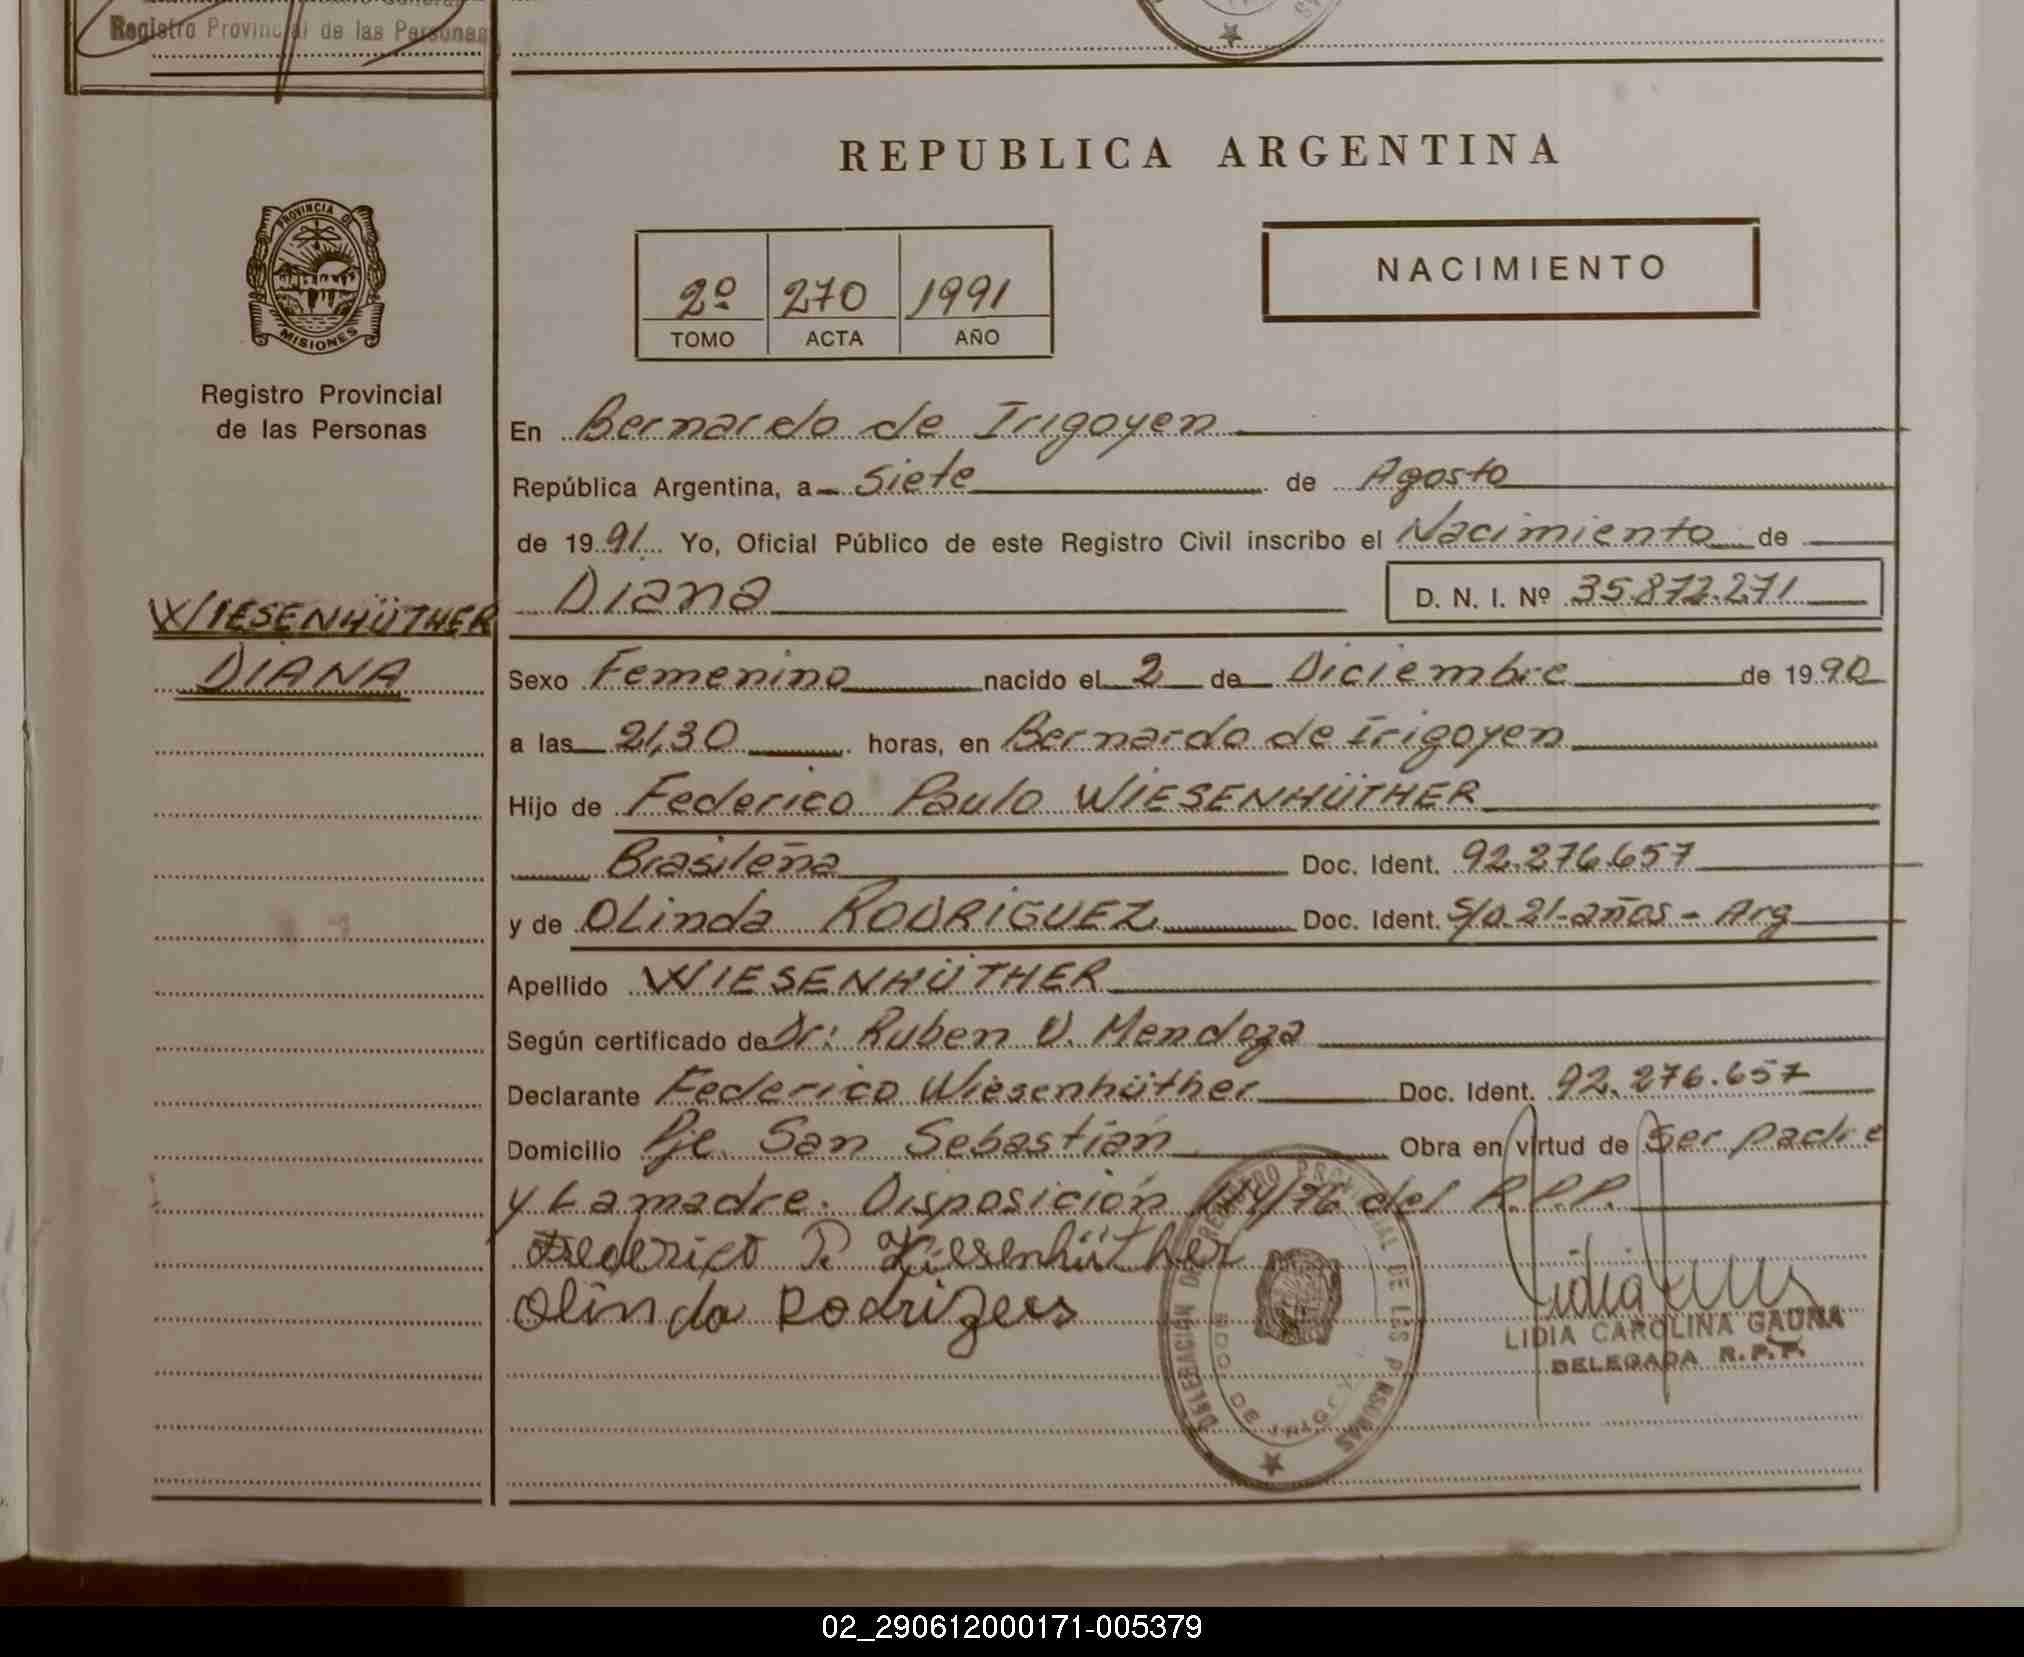 Registro Provincial de las Personas
REPUBLICA ARGENTINA
PROVINCIA DE
MISIONES
Registro Provincial
de las Personas
2º 270 1991
TOMO ACTA AÑO
NACIMIENTO
En Bernardo de Irigoyen
República Argentina, a Siete de Agosto
de 1991. Yo, Oficial Público de este Registro Civil inscribo el Nacimiento de
WIESENHÜTHER
DIANA
Diana D. N. I. Nº 35.872.271
Sexo Femenino nacido el 2 de Diciembre de 1990
a las 21,30 horas, en Bernardo de Irigoyen
Hijo de Federico Paulo WIESENHÜTHER
Brasileña Doc. Ident. 92.276.657
y de OLinda RODRIGUEZ Doc. Ident. S/D. 21-años - Arg
Apellido WIESENHÜTHER
Según certificado de Dr: Ruben D. Mendoza
Declarante Federico Wiesenhüther Doc. Ident. 92.276.657
Domicilio Pje San Sebastián Obra en virtud de Ser padre
y La madre. Disposición /76 del R.P.P.
Federico P. Wiesenhüther
Olinda Rodrigues
LIDIA CAROLINA GAUNA
DELEGADA R.P.P.
DELEGACION DEL REGISTRO PROVINCIAL DE LAS PERSONAS
BDO. DE IRIGOYEN
02_290612000171-005379